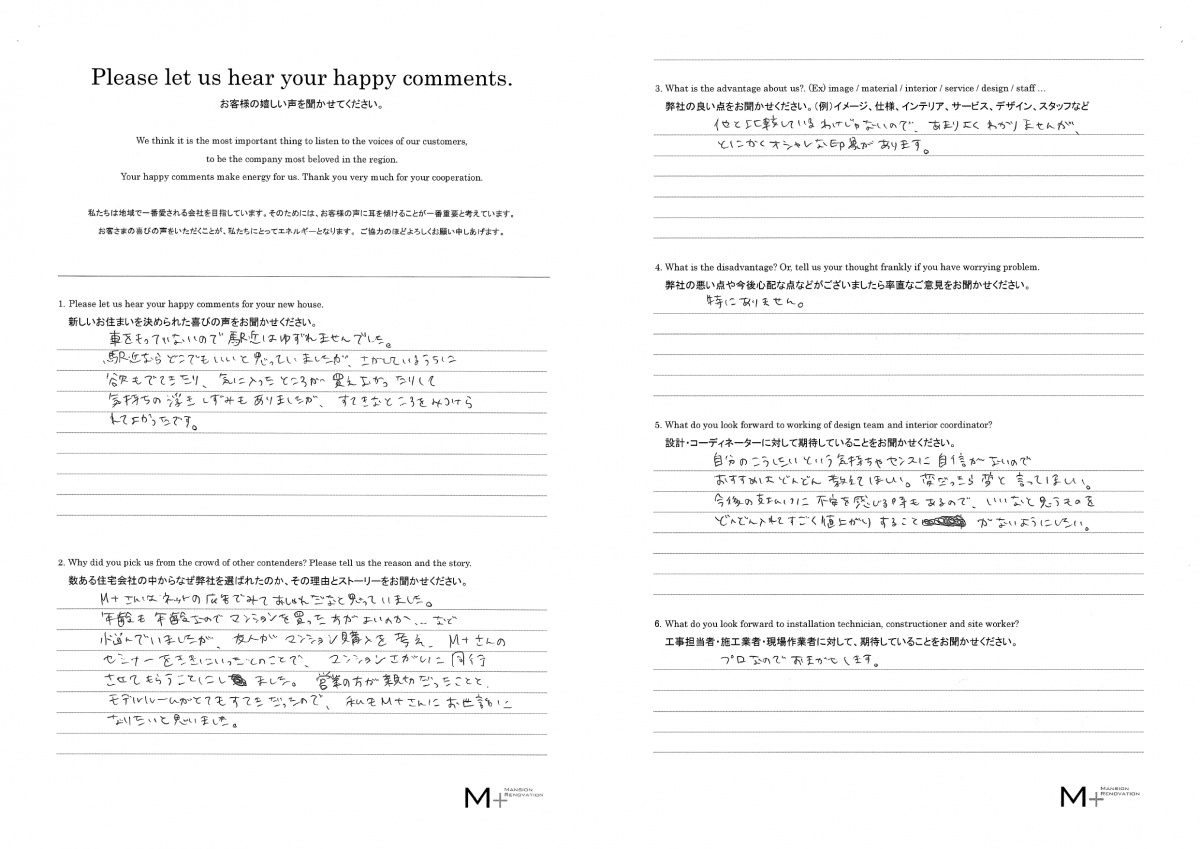 Please let us hear your happy comments.
お客様の嬉しい声を聞かせてください。
We think it is the most important thing to listen to the voices of our customers,
to be the company most beloved in the region.
Your happy comments make energy for us. Thank you very much for your cooperation.
私たちは地域で一番愛される会社を目指しています。そのためには、お客様の声に耳を傾けることが一番重要と考えています。
お客さまの喜びの声をいただくことが、私たちにとってエネルギーとなります。 ご協力のほどよろしくお願い申しあげます。
1. Please let us hear your happy comments for your new house.
新しいお住まいを決められた喜びの声をお聞かせください。
車をもっていないので駅近はゆずれませんでした。
駅近ならどこでもいいと思っていましたが、さがしているうちに
欲もでてきたり、気に入ったところが買えなかったりして
気持ちの浮きしずみもありましたが、すてきなところをみつけら
れてよかったです。
2. Why did you pick us from the crowd of other contenders? Please tell us the reason and the story.
数ある住宅会社の中からなぜ弊社を選ばれたのか、その理由とストーリーをお聞かせください。
M+さんはネットの広告でみておしゃれだなと思っていました。
年齢も年齢なのでマンションを買った方がよいのか…など
悩んでいましたが、友人がマンション購入を考え、M+さんの
セミナーをききにいったとのことで、マンションさがしに同行
させてもらうことにしました。営業の方が親切だったことと、
モデルルームがとてもすてきだったので、私もM+さんにお世話に
なりたいと思いました。
M+ MANSION RENOVATION
3. What is the advantage about us?. (Ex) image / material / interior / service / design / staff ...
弊社の良い点をお聞かせください。(例)イメージ、仕様、インテリア、サービス、デザイン、スタッフなど
他と比較しているわけじゃないので、あまりよくわかりませんが、
とにかくオシャレな印象があります。
4. What is the disadvantage? Or, tell us your thought frankly if you have worrying problem.
弊社の悪い点や今後心配な点などがございましたら率直なご意見をお聞かせください。
特にありません。
5. What do you look forward to working of design team and interior coordinator?
設計・コーディネーターに対して期待していることをお聞かせください。
自分のこうしたいという気持ちやセンスに自信がないので
おすすめはどんどん教えてほしい。変だったら変と言ってほしい。
今後の支払いに不安を感じる時もあるので、いいなと思うものを
どんどん入れてすごく値上がりすること がないようにしたい。
6. What do you look forward to installation technician, constructioner and site worker?
工事担当者・施工業者・現場作業者に対して、期待していることをお聞かせください。
プロなのでおまかせします。
M+ MANSION RENOVATION